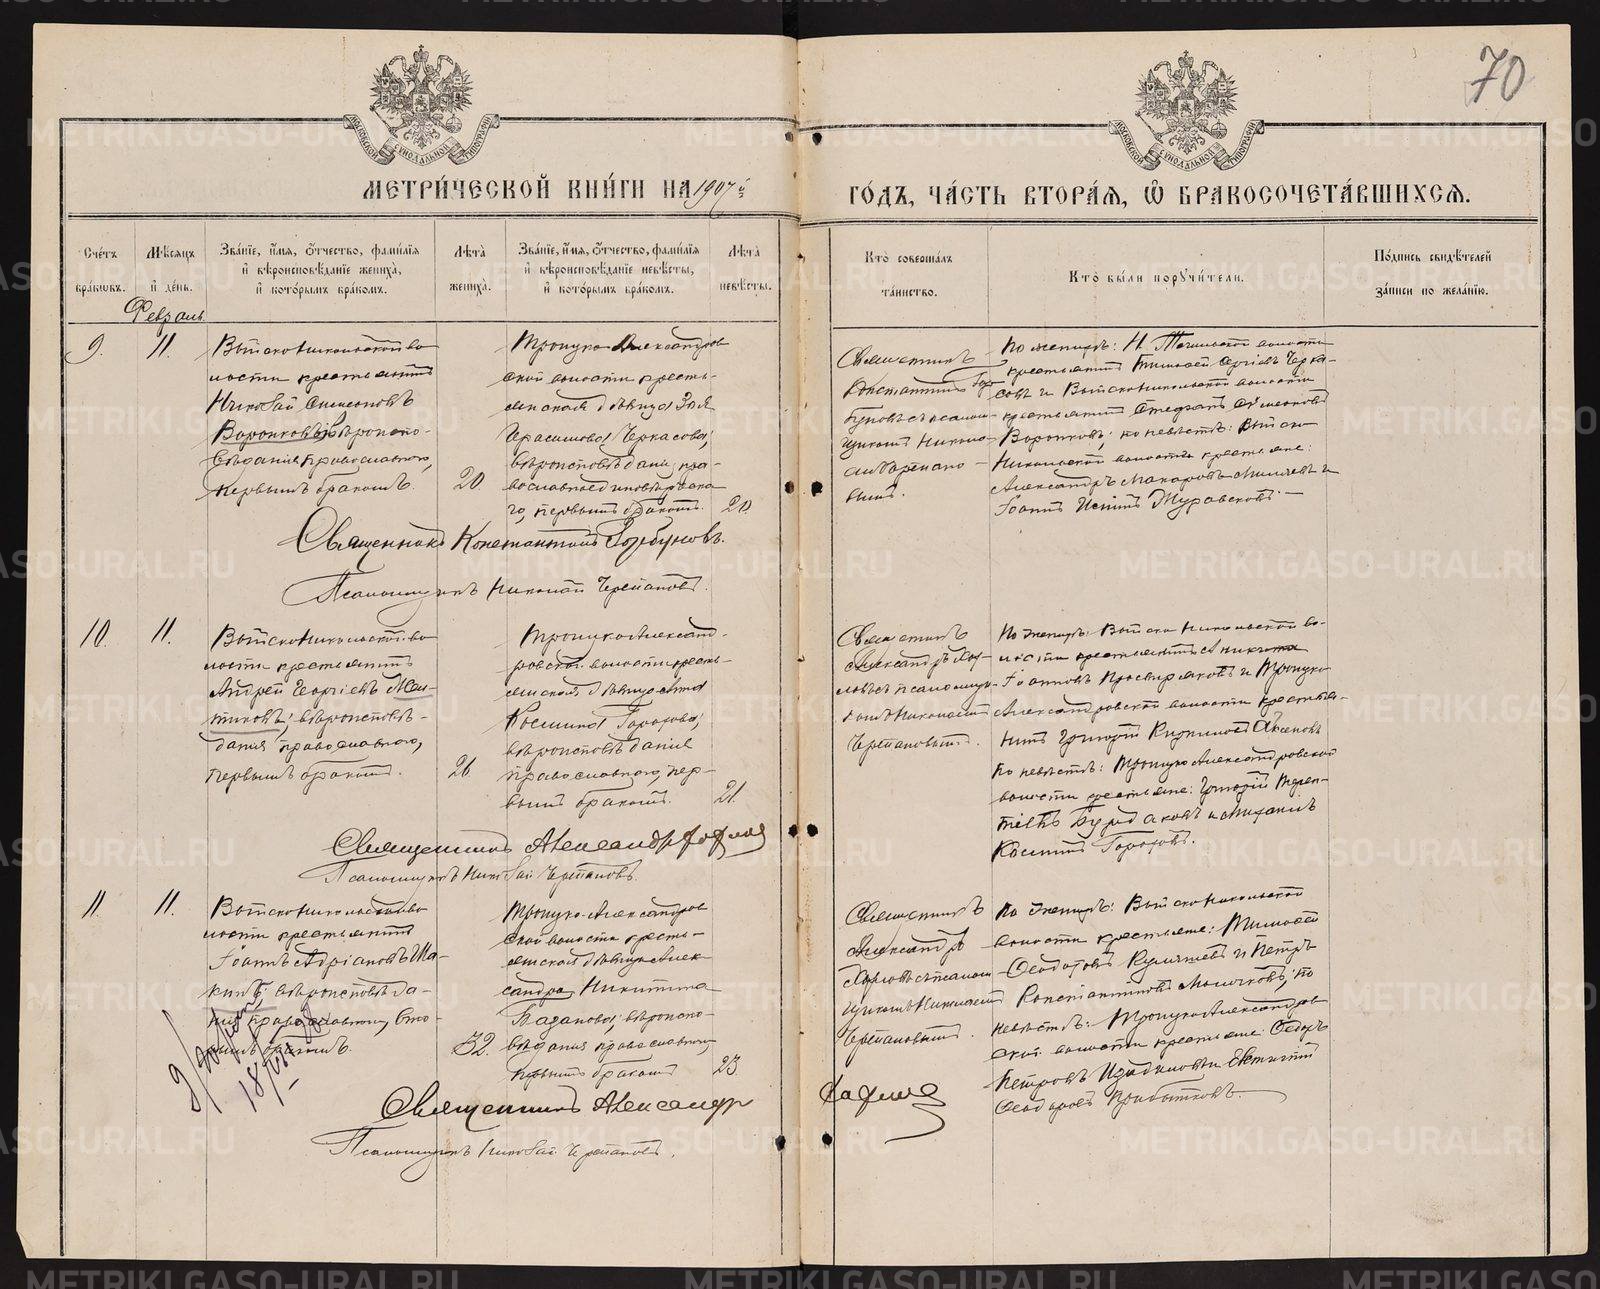 70
МОСКОВСКОЙ СѴНОДАЛЬНОЙ ТИПОГРАФІИ
МОСКОВСКОЙ СѴНОДАЛЬНОЙ ТИПОГРАФІИ
МЕТРИ́ЧЕСКОЙ КНИ́ГИ НА 1907й
ГО́ДЪ, ЧА́СТЬ ВТОРА́Я, Ѽ БРАКОСОЧЕТА́ВШИХСЯ.
Сче́тъ бра́кѡвъ.
Мѣ́сяцъ и де́нь.
Зва́нїе, и́мя, ѻ́тчество, фами́лїя и вѣроисповѣ́данїе жениха̀, и кото́рымъ бра́комъ.
Лѣта̀ жениха̀.
Зва́нїе, и́мя, ѻ́тчество, фами́лїя и вѣроисповѣ́данїе невѣ́сты, и кото́рымъ бра́комъ.
Лѣта̀ невѣ́сты.
Кто̀ соверша́лъ та́инство.
Кто̀ бы́ли порꙋчи́тели.
По́дпись свидѣ́телей за́писи по жела́нїю.
Февраль
9.
11.
Вытско Никольской во
лости крестьянинъ
Николай Симеоновъ
Воронковъ, вѣроиспо-
вѣданія православнаго,
первымъ бракомъ.
20
Троицко Александров
ской волости кресть-
янская дѣвица Зоя
Герасимова Черкасова,
вѣроисповѣданія пра-
вославнаго единовѣрческа
го, первымъ бракомъ.
20.
Священникъ
Константинъ Гор
буновъ съ псалом-
щикомъ Никола-
емъ Черепано-
вымъ.
По женихѣ: Н. волости
крестьянинъ Тимоѳей Сергіевъ Черка-
совъ и Вытско Никольской волости
крестьянинъ Стефанъ Симеоновъ
Воронковъ; по невѣстѣ: Вытско
Никольской волости крестьяне:
Александръ Макаровъ и
Іоаннъ Журавсковъ. —
Священникъ Константинъ Горбуновъ.
Псаломщикъ Николай Черепановъ.
10.
11.
Вытско Никольской во
лости крестьянинъ
Андрей Георгіевъ
вѣроисповѣ-
данія православнаго,
первымъ бракомъ.
26
Троицко Александ-
ровской волости кресть-
янская дѣвица Анна
Косьмина Горохова,
вѣроисповѣданія
православнаго, пер-
вымъ бракомъ.
21.
Священникъ
Александръ
съ псаломщи-
комъ Николаемъ
Черепановымъ.
По женихѣ: Вытско Никольской во-
лости крестьянинъ Аникита
Іоанновъ Просвиряковъ и Троицко
Александровской волости крестья-
нинъ Григорій Аксеновъ
по невѣстѣ: Троицко Александровской
волости крестьяне: Григорій Терен-
тіевъ Бурдаковъ и Михаилъ
Косминъ Гороховъ.
Священникъ Александръ
Псаломщикъ Николай Черепановъ.
11.
11.
Вытско Никольской во
лости крестьянинъ
Іоаннъ Адріановъ Ша-
кинъ, вѣроисповѣда-
нія православнаго, вто-
рымъ бракомъ.
32.
Троицко-Александров
ской волости кресть-
янская дѣвица Алек-
сандра Никитина
Базанова, вѣроиспо-
вѣданія православнаго,
первымъ бракомъ
23
Священникъ
Александръ
съ псалом
щикомъ Николаемъ
Черепановымъ.
По женихѣ: Вытско Никольской
волости крестьяне: Тимоѳей
Ѳеодотовъ и Петръ
Константиновъ Молочковъ; по
невѣстѣ: Троицко Александров
ской волости крестьяне: Ѳедоръ
Петровъ и Евтихій
Ѳеодоровъ Прибытковъ.
Священникъ Александръ
Псаломщикъ Николай Черепановъ.
METRIKI.GASO-URAL.RU